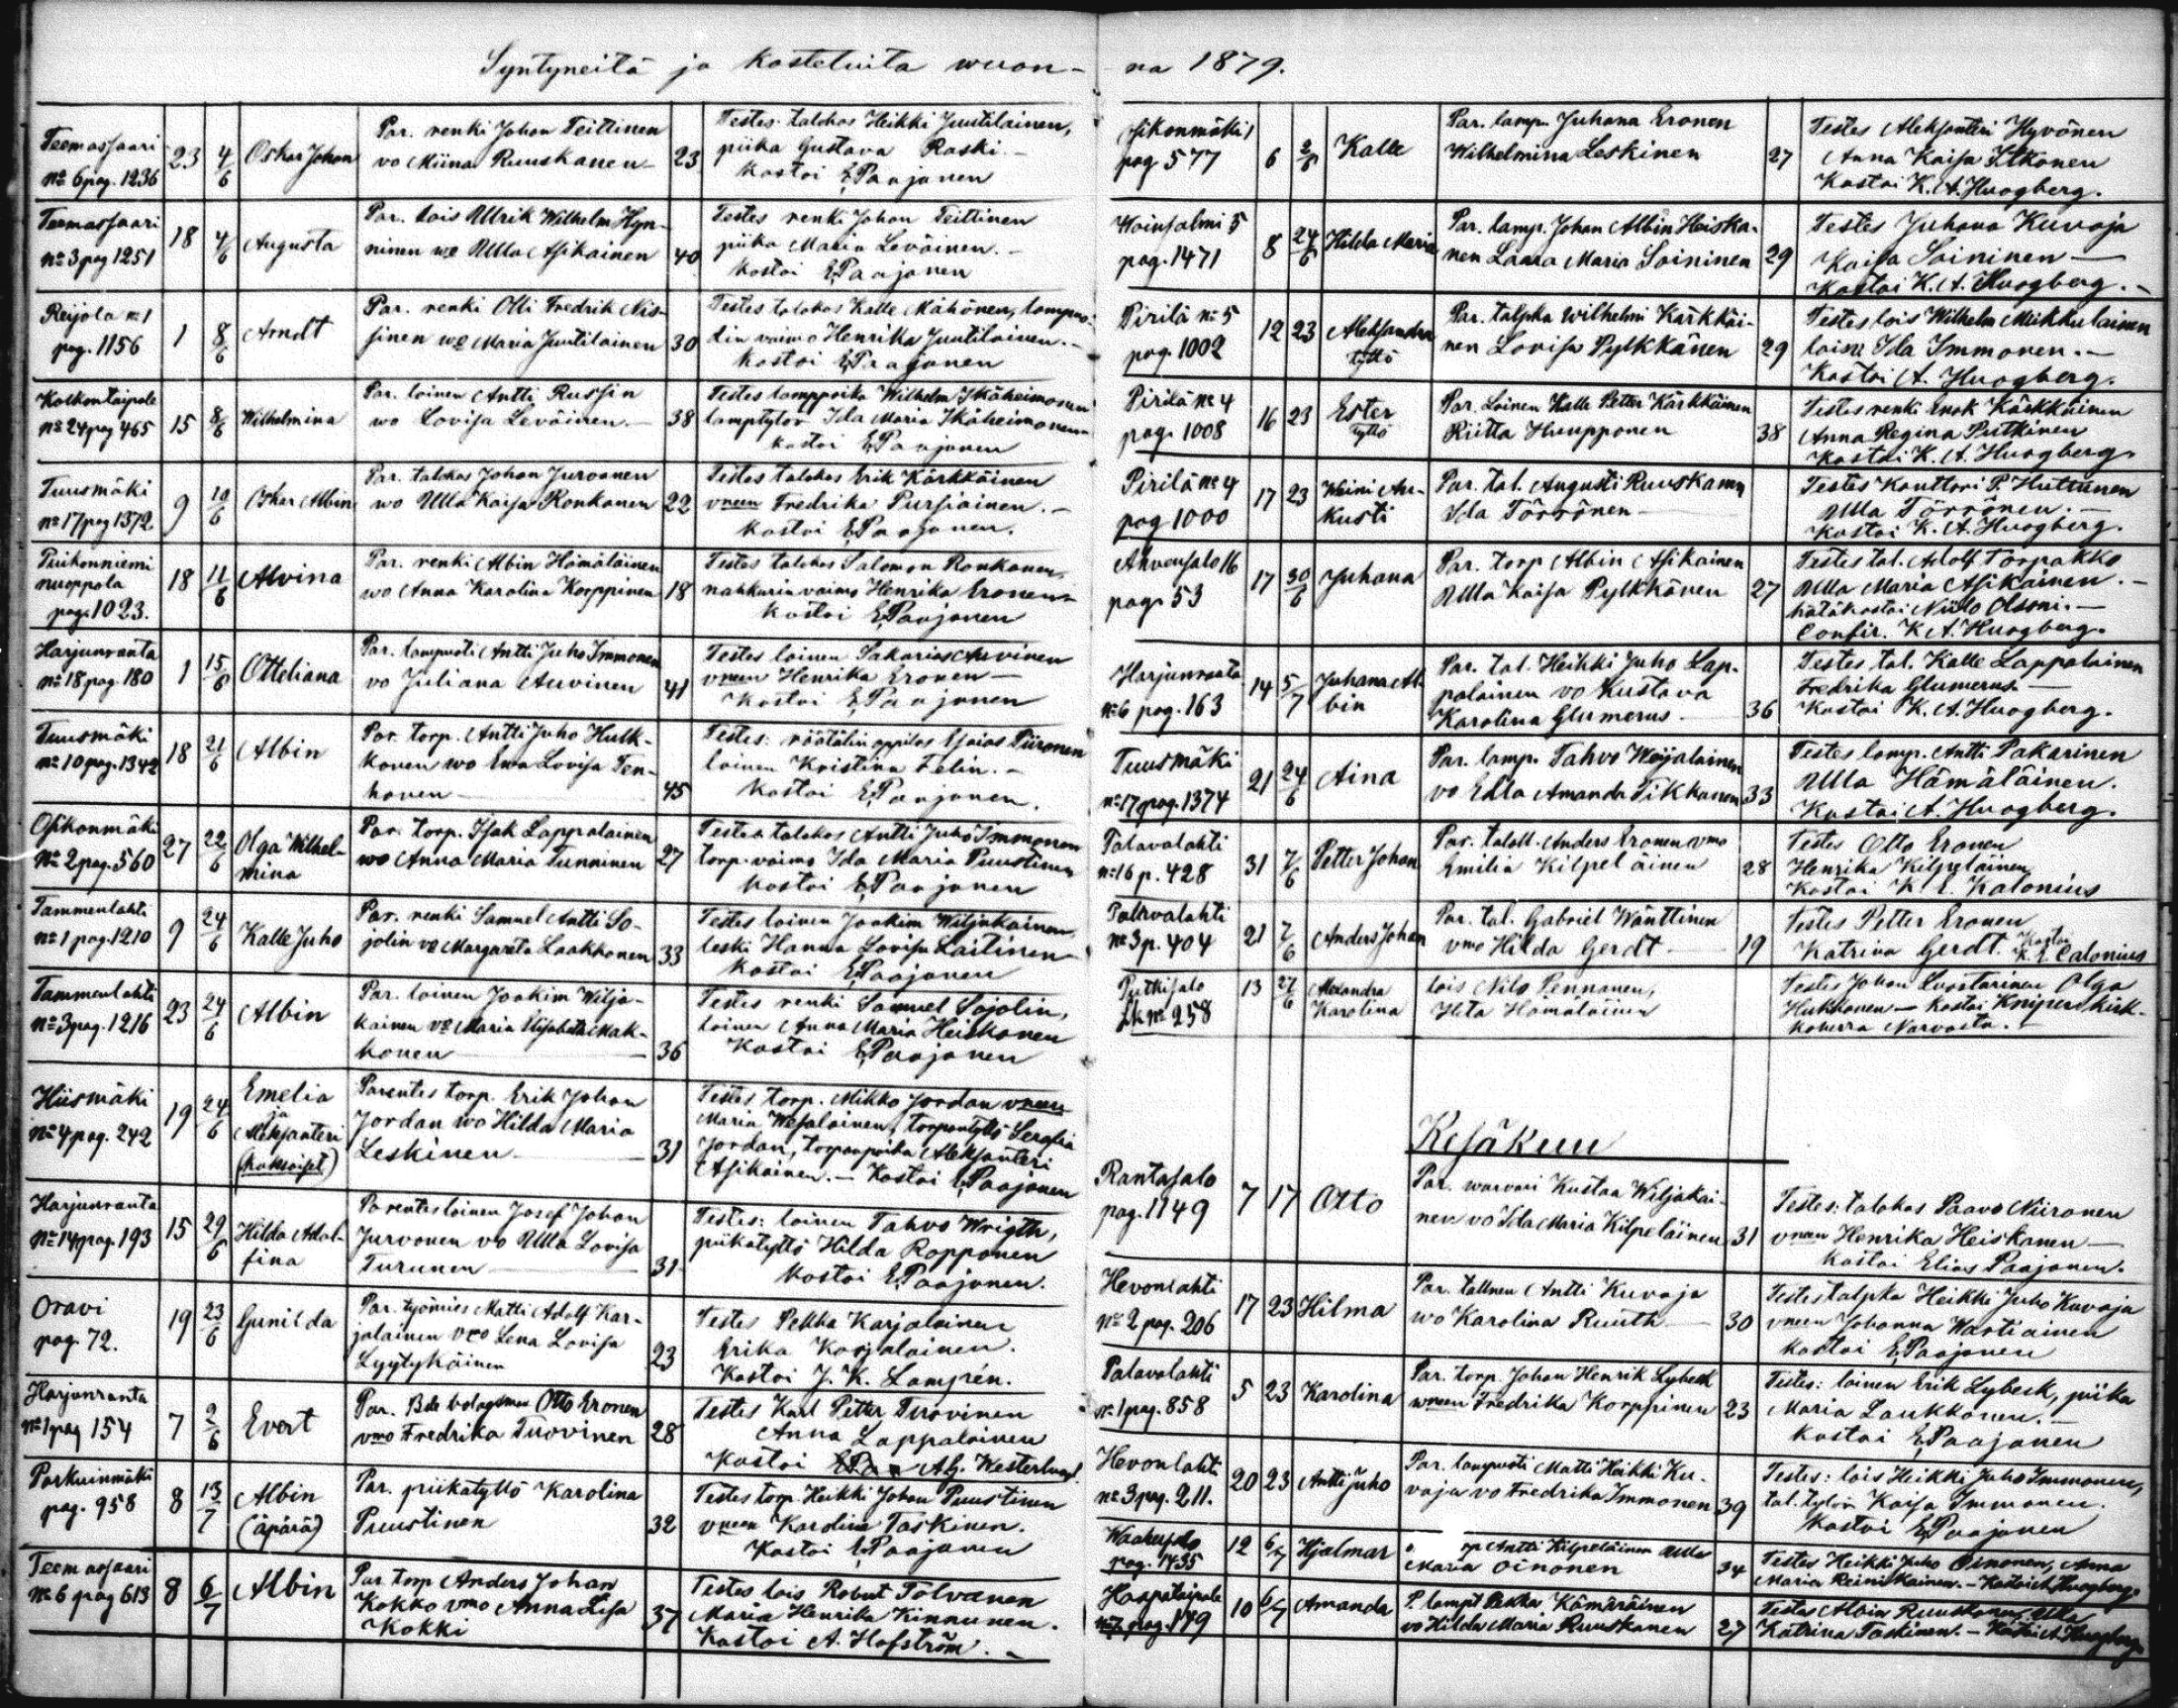 Syntyneitä ja kasteluita wuon- na 1879.
Teemassaari Par. renki Johan Teittinen Testes: talokas Heikki Juutilainen,
23 4/6 Oskar Johan vo Miina Ruuskanen 23 piika Gustava Raski.-
No 6 pag. 1236 Kastoi E. Paajanen
Teemassaari Par. lois Ullrik Wilhelm Hyn- Testes renki Johan Teittinen
18 4/6 Augusta ninen wo Ulla Asikainen 40 piika Maria Leväinen.-
No 3 pag 1251 Kastoi E. Paajanen
Reijola No 1 Par. renki Olli Fredrik Nis- Testes talokas Kalle Mähönen, lampuo-
pag. 1156 1 8/6 Arndt sinen wo Maria Juutilainen 30 din vaimo Henrika Juutilainen.-
Kastoi E. Paajanen
Kolkontaipale Par. loinen Antti Russin Testes lamppoika Wilhelm Ikäheimonen
No 24 pag 465 15 8/6 Wilhelmina wo Lovisa Leväinen.- 38 lamptytör Ida Maria Ikäheimonen
Kastoi E. Paajanen
Tuusmäki Par. talokas Johan Jurvanen Testes talokas Erik Kärkkäinen
No 17 pag 1372 9 10/6 Oskar Albin wo Ulla Kaisa Ronkanen 22 vneen Fredrika Pursiainen.-
Kastoi E. Paajanen.
Piikonniemi Par. renki Albin Hämäläinen Testes talokas Salomon Ronkanen,
nuoppola 18 11/6 Alvina wo Anna Karolina Korppinen 18 nahkurin vaimo Henrika Eronen
pag. 1023. Kastoi E. Paajanen
Harjunranta Par. lampuoti Antti Juho Immonen Testes loinen Sakarias Auvinen
No 18 pag. 180 1 15/6 Otteliana vo Juliana Auvinen 41 vneen Henrika Eronen-
Kastoi E. Paajanen
Tuusmäki Par. torp. Antti Juho Hulk- Testes: räätälin oppilas Esaias Piironen
No 10 pag. 1342 18 21/6 Albin konen wo Ewa Lovisa Ten- loinen Kristina Felin.-
honen 45 Kastoi E. Paajanen.
Osikonmäki Par. torp. Isak Lappalainen Testes talokas Antti Juho Immonen
No 2 pag. 560 27 22/6 Olga Wilhel- wo Anna Maria Tunninen 27 torp. vaimo Ida Maria Puustinen
mina Kastoi E. Paajanen
Tammenlahti Par. renki Samuel Antti So- Testes loinen Joakim Wiljakainen,
No 1 pag. 1210 9 24/6 Kalle Juho jolin vo Margareta Laakkonen 33 leski Hanna Lovisa Laitinen
Kastoi E. Paajanen
Tammenlahti Par. loinen Joakim Wilja- Testes renki Samuel Sojolin,
No 3 pag. 1216 23 24/6 Albin kainen vo Maria Elisabeta Mak- loinen Anna Maria Heiskanen
konen 36 Kastoi E. Paajanen
Hiismäki Emelia Parentes torp. Erik Johan Testes torp. Mikko Jordan vneen
No 4 pag. 242 19 24/6 ja Jordan wo Hilda Maria Maria Wesalainen, torpantyttö Serafia
Aleksanteri Leskinen 31 Jordan, torpanpoika Aleksanteri
(kaksoiset) Asikainen.- Kastoi E. Paajanen
Harjunranta Parentes loinen Josef Johan Testes: loinen Tahvo Wrigth,
No 14 pag. 193 15 29/6 Hilda Adol- Jurvonen vo Ulla Lovisa piikatyttö Hilda Ropponen
fina Turunen 31 Kastoi E. Paajanen.
Oravi Par. työmies Matti Adolf Kar- Testes Pekka Karjalainen
pag. 72. 19 23/6 Gunilda jalainen vo Lena Lovisa Erika Karjalainen.
Lyytykäinen 23 Kastoi J. K. Lampén.
Harjunranta Par. Otto Eronen Testes Karl Petter Tuovinen
No 1 pag 154 7 2/6 Evert vmo Fredrika Tuovinen 28 Anna Lappalainen
Kastoi
Parkuinmäki Par. piikatyttö Karolina Testes torp. Heikki Johan Puustinen
pag. 958 8 13/7 Albin Puustinen 32 vneen Karolina Taskinen.
(äpärä) Kastoi E. Paajanen
Teemassaari Par. torp Anders Johan Testes lois Robert Tolvanen
No 6 pag 613 8 6/7 Albin Kokko vmo Anna Lisa 37 Maria Henrika Kinnunen.
Kokki Kastoi A. Hofström.-
Osikonmäki Par. lamp. Juhana Eronen Testes Aleksanteri Hyvönen
pag 577 6 2/6 Kalle Wilhelmina Leskinen 27 Anna Kaisa Itkonen
Kastoi K. A. Huogberg.
Hainsalmi 5 Par. lamp. Johan Albin Heiska- Testes Juhana Kuvaja
pag. 1471 8 24/6 Hilda Maria nen Laara Maria Soininen 29 Kaisa Soininen-
Kastoi K. A. Huogberg.-
Pirilä No 5 Par. talpka Wilhelmi Kärkkäi- Testes lois Wilhelm Miikkulainen
pag. 1002 12 23 Aleksandra nen Lovisa Pylkkänen 29 loinen Ida Immonen.-
tyttö Kastoi A. Huogberg.
Pirilä No 4 Par. Loinen Kalle Petter Kärkkäinen Testes renki Enok Kärkkäinen
pag. 1008 16 23 Ester Riitta Huupponen 38 Anna Regina Putkinen
tyttö Kastoi K. A. Huogberg.
Pirilä No 4 Par. tal. Augusti Ruuskanen Testes Kanttori P. Huttunen
pag 1000 17 23 Weini Au- Ida Törrönen Ulla Törrönen.-
kusti Kastoi K. A. Huogberg.
Ahvensalo 16 Par. torp Albin Asikainen Testes tal. Adolf Torpakko
pag. 53 17 30/6 Juhana Ulla Kaisa Pylkkänen 27 Ulla Maria Asikainen.-
hätäkastoi Niilo Olsoni.-
Confir. K. A. Huogberg.
Harjunranta Par. tal. Heikki Juho Lap- Testes tal. Kalle Lappalainen
No 6 pag. 163 14 5/7 Juhana Al- palainen vo Kustava Fredrika Glumerus.-
bin Karolina Glumerus 36 Kastoi K. A. Huogberg.
Tuusmäki Par. lamp. Tahvo Weijalainen Testes lamp. Antti Pakarinen
No 17 pag. 1374 21 24/6 Aina vo Edla Amanda Tikkanen 33 Ulla Hämäläinen.
Kastoi A. Huogberg.
Palavalahti Par. taloll. Anders Eronen vmo Testes Otto Eronen
No 16 p. 428 31 7/6 Petter Johan Emilia Kilpeläinen 28 Henrika Kilpeläinen
Kastoi K. L. Kalonius
Palavalahti Par. tal. Gabriel Wänttinen Testes Petter Eronen
No 3 p. 404 21 7/6 Anders Johan vmo Hilda Gerdt 19 Katrina Gerdt. Kastoi K. L. Calonius
Putkisalo 13 27/6 Alexandra lois Nils Pennanen, Testes Johan Luostarinen Olga
Lk No 258 Karolina Heta Hämäläinen Hukkanen - Kastoi
Narvasta.-
Kesäkuu
Rantasalo Par. Kustaa Wiljakai- Testes: talokas Paavo Niiranen
pag. 1149 7 17 Otto nen vo Ida Maria Kilpeläinen 31 vneen Henrika Heiskanen-
Kastoi Elias Paajanen.
Hevonlahti Par. Antti Kuvaja Testes talpka Heikki Juho Kuvaja
No 2 pag. 206 17 23 Hilma wo Karolina Ruuth 30 vneen Johanna Wartiainen
Kastoi E. Paajanen
Palavalahti Par. torp. Johan Henrik Lybeck Testes: loinen Erik Lybeck, piika
No 1 pag. 858 5 23 Karolina wneen Fredrika Korppinen 23 Maria Laukkanen.-
Kastoi E. Paajanen
Hevonlahti Par. lampuoti Matti Heikki Ku- Testes: lois Heikki Juho Immonen,
No 3 pag. 211. 20 23 Antti Juho vaja vo Fredrika Immonen 39 tal. tytör Kaisa Immonen.
Kastoi E. Paajanen
pag. 1435 12 6/7 Hjalmar Antti Kilpeläinen Ulla Testes Heikki Juho Oinonen, Anna
Maria Oinonen 34 Maria Reinikainen.- Kastoi A. Huogberg.
Haapataipale P. lampt Pekka Kämäräinen Testes Albin Ruuskanen Ulla
pag. 179 10 6/7 Amanda vo Hilda Maria Ruuskanen 27 Katrina Taskinen.- Kastoi A. Huogberg.